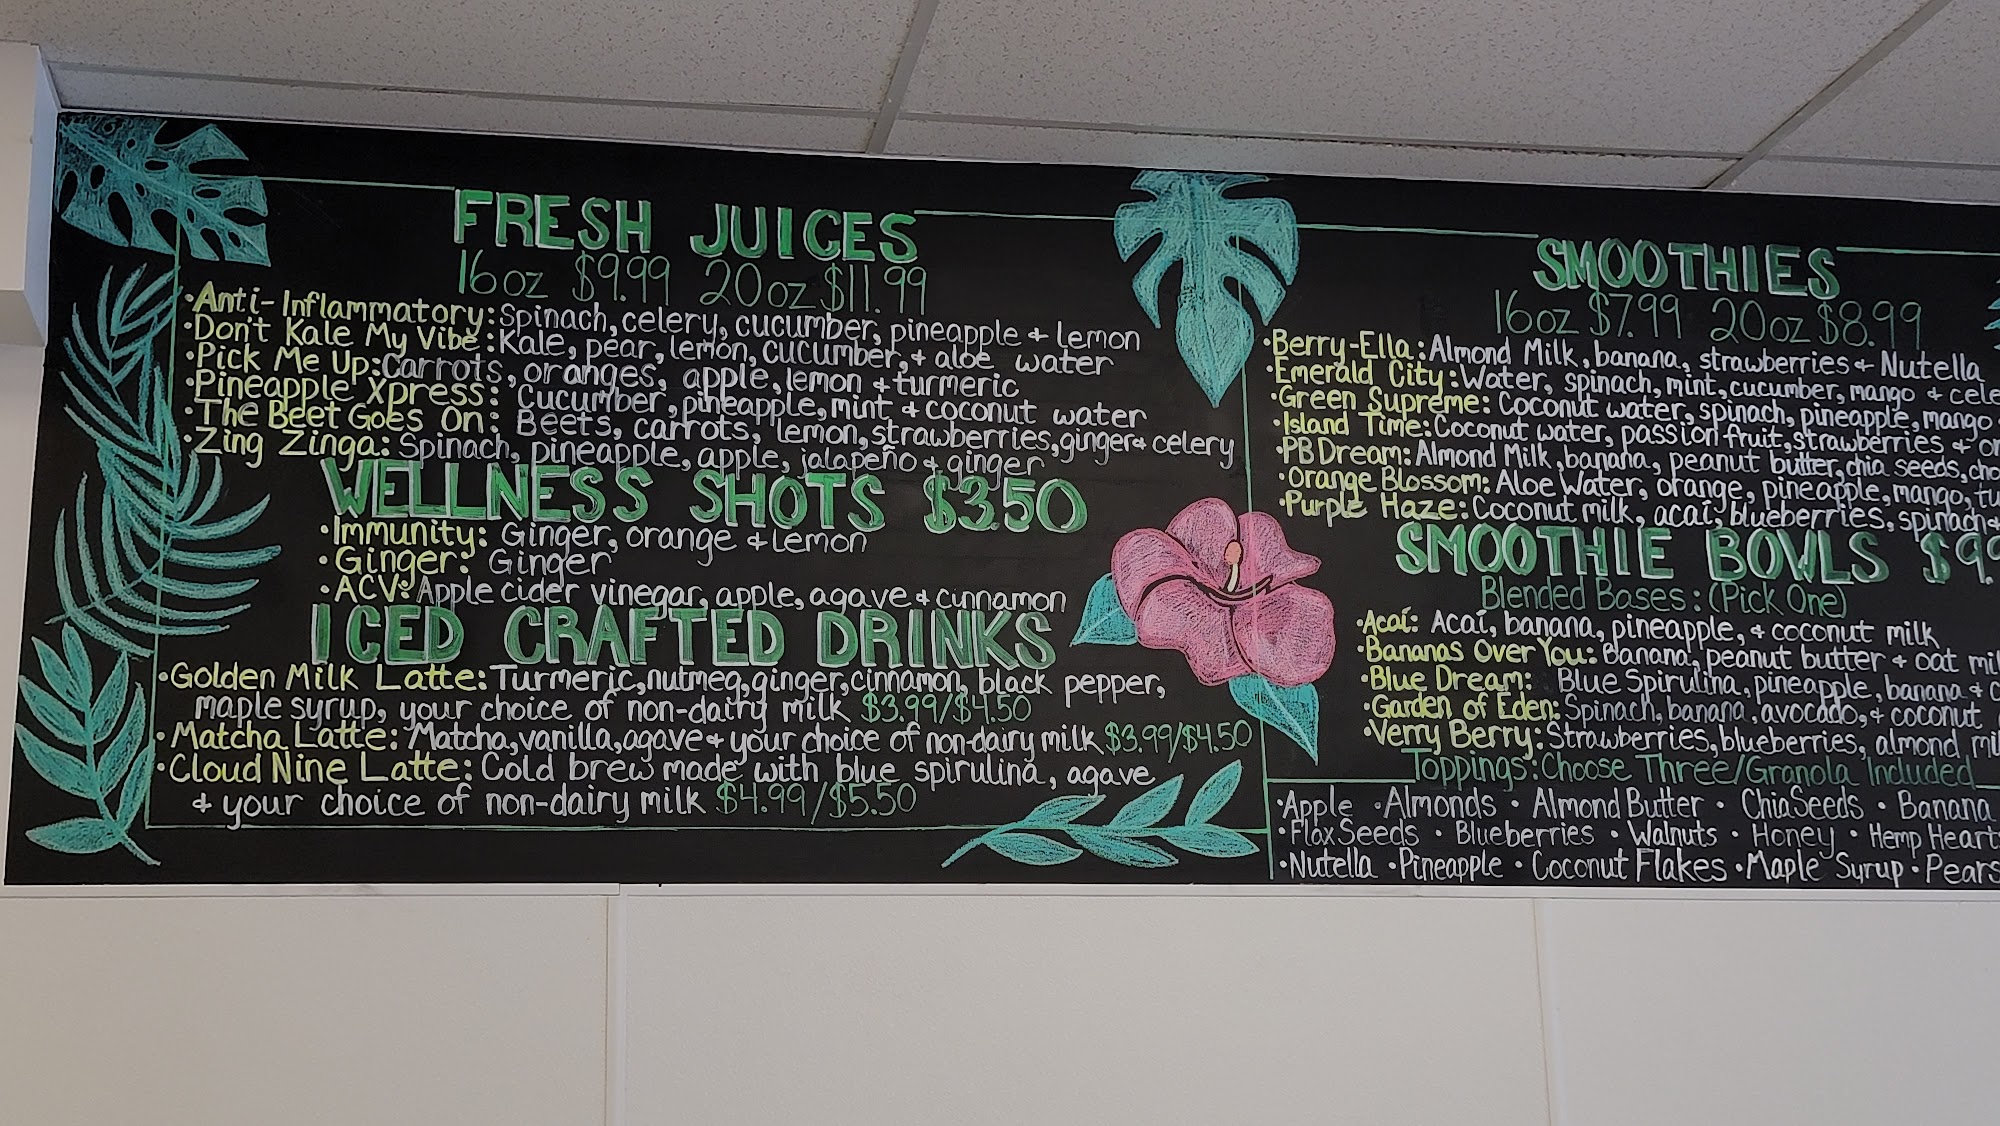 FRESH JUICES
16oz $9.99 20oz $11.99
•Anti-Inflammatory: Spinach, celery, cucumber, pineapple + lemon
•Don't Kale My Vibe: Kale, pear, lemon, cucumber, + aloe water
•Pick Me Up: Carrots, oranges, apple, lemon + turmeric
•Pineapple Xpress: Cucumber, pineapple, mint + coconut water
•The Beet Goes On: Beets, carrots, lemon, strawberries, ginger + celery
•Zing Zinga: Spinach, pineapple, apple, jalapeño + ginger
WELLNESS SHOTS $3.50
•Immunity: Ginger, orange + lemon
•Ginger: Ginger
•ACV: Apple cider vinegar, apple, agave + cinnamon
ICED CRAFTED DRINKS
•Golden Milk Latte: Turmeric, nutmeg, ginger, cinnamon, black pepper,
maple syrup, your choice of non-dairy milk $3.99/$4.50
•Matcha Latte: Matcha, vanilla, agave + your choice of non-dairy milk $3.99/$4.50
•Cloud Nine Latte: Cold brew made with blue spirulina, agave
+ your choice of non-dairy milk $4.99/$5.50
SMOOTHIES
16oz $7.99 20oz $8.99
•Berry-Ella: Almond Milk, banana, strawberries + Nutella
•Emerald City: Water, spinach, mint, cucumber, mango + cele
•Green Supreme: Coconut water, spinach, pineapple, mango
•Island Time: Coconut water, passion fruit, strawberries + or
•PB Dream: Almond Milk, banana, peanut butter, chia seeds, cho
•Orange Blossom: Aloe Water, orange, pineapple, mango, tu
•Purple Haze: Coconut milk, acaí, blueberries, spinach +
SMOOTHIE BOWLS $9.
Blended Bases: (Pick One)
•Acaí: Acaí, banana, pineapple, + coconut milk
•Bananas Over You: Banana, peanut butter + oat mil
•Blue Dream: Blue Spirulina, pineapple, banana + c
•Garden of Eden: Spinach, banana, avocado, + coconut
•Verry Berry: Strawberries, blueberries, almond mil
Toppings: Choose Three/Granola Included
•Apple •Almonds • Almond Butter • Chia Seeds • Banana
•Flax Seeds • Blueberries • Walnuts • Honey • Hemp Heart
•Nutella •Pineapple • Coconut Flakes •Maple Syrup •Pears